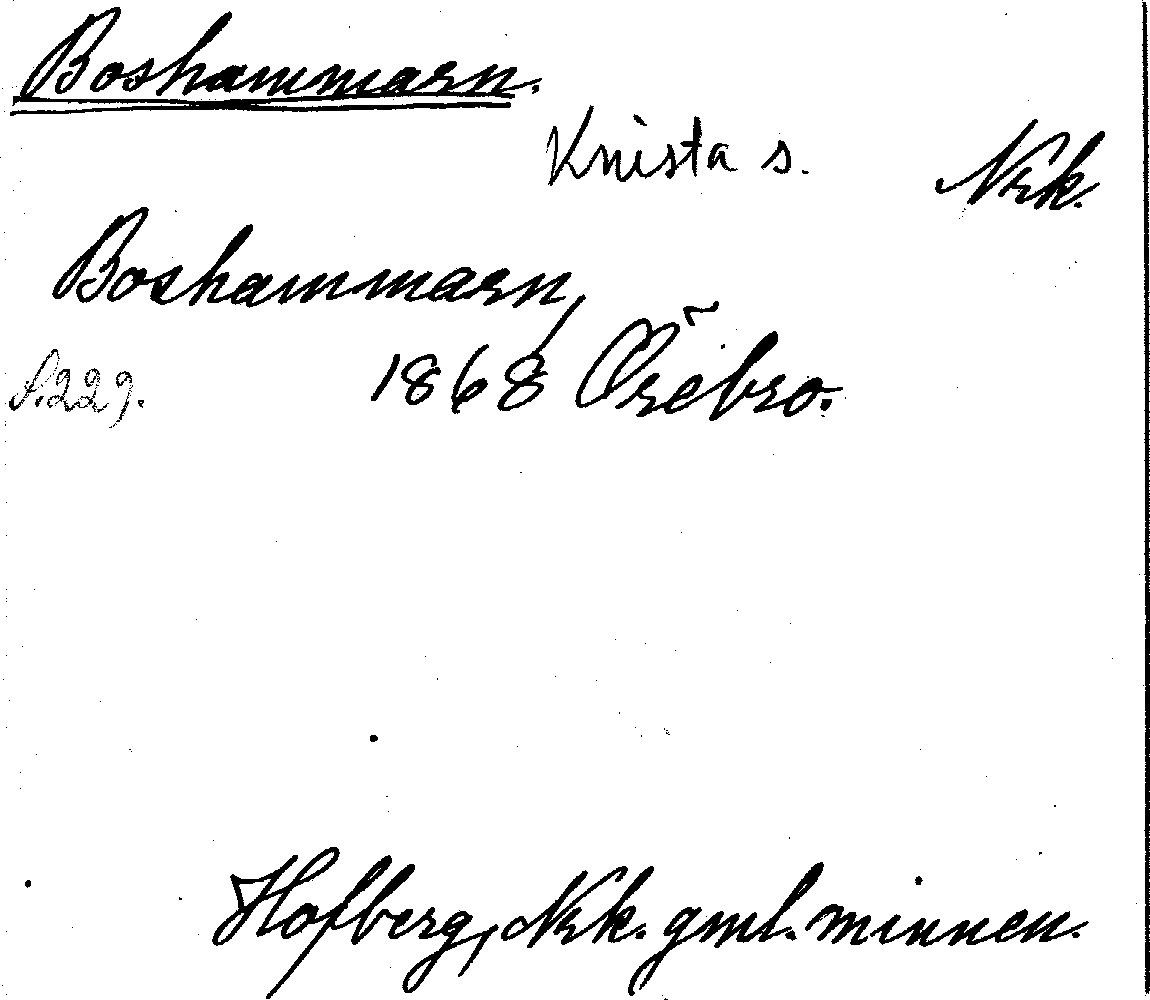 Boshammarn.
Knista s. Nrk.
Boshammarn,
S.229. 1868 Örebro.
Hofberg, Nrk. gml. minnen.